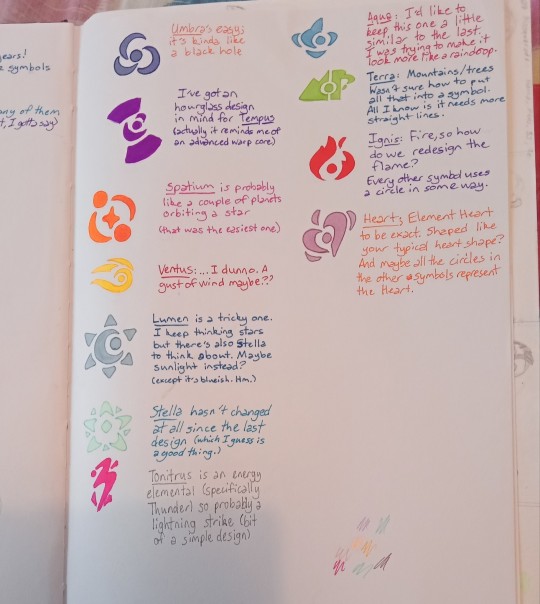 ears!
symbols
any of them
t, I gotta say)
Umbra's easy;
it's kinda like
a black hole
I've got an
hourglass design
in mind for Tempus
(actually it reminds me of
an advanced warp core)
Spatium is probably
like a couple of planets
orbiting a star
(that was the easiest one)
Ventus:...I dunno. A
gust of wind maybe??
Lumen is a tricky one.
I keep thinking stars
but there's also Stella
to think about. Maybe
sunlight instead?
(except it's blueish. Hm.)
Stella hasn't changed
at all since the last
design (which I guess is
a good thing.)
Tonitrus is an energy
elemental (specifically
Thunder) so probably a
lightning strike (bit
of a simple design)
Aqua: I'd like to
keep this one a little
similar to the last.
I was trying to make it
look more like a raindrop.
Terra: Mountains/trees
Wasn't sure how to put
all that into a symbol.
All I know is it needs more
straight lines.
Ignis: Fire, so how
do we redesign the
flame?
Every other symbol uses
a circle in some way.
Heart; Element Heart
to be exact. Shaped like
your typical heart shape?
And maybe all the circles in
the other symbols represent
the Heart.